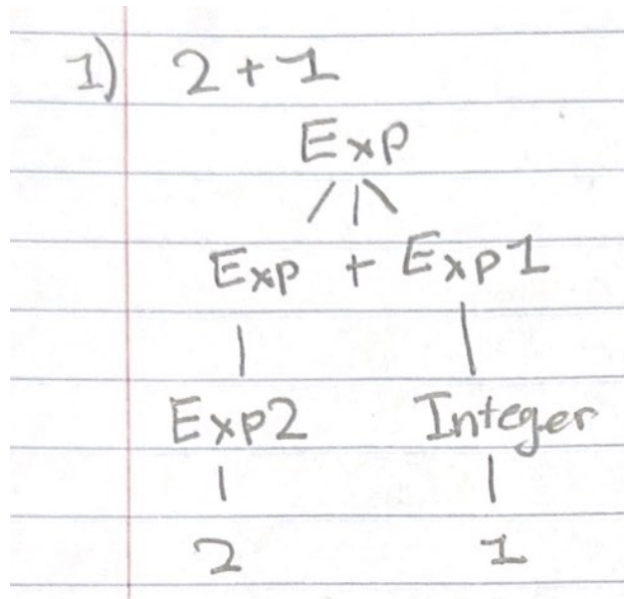 1) 2 + 1
Exp
Exp + Exp1
Exp2 Integer
2 1